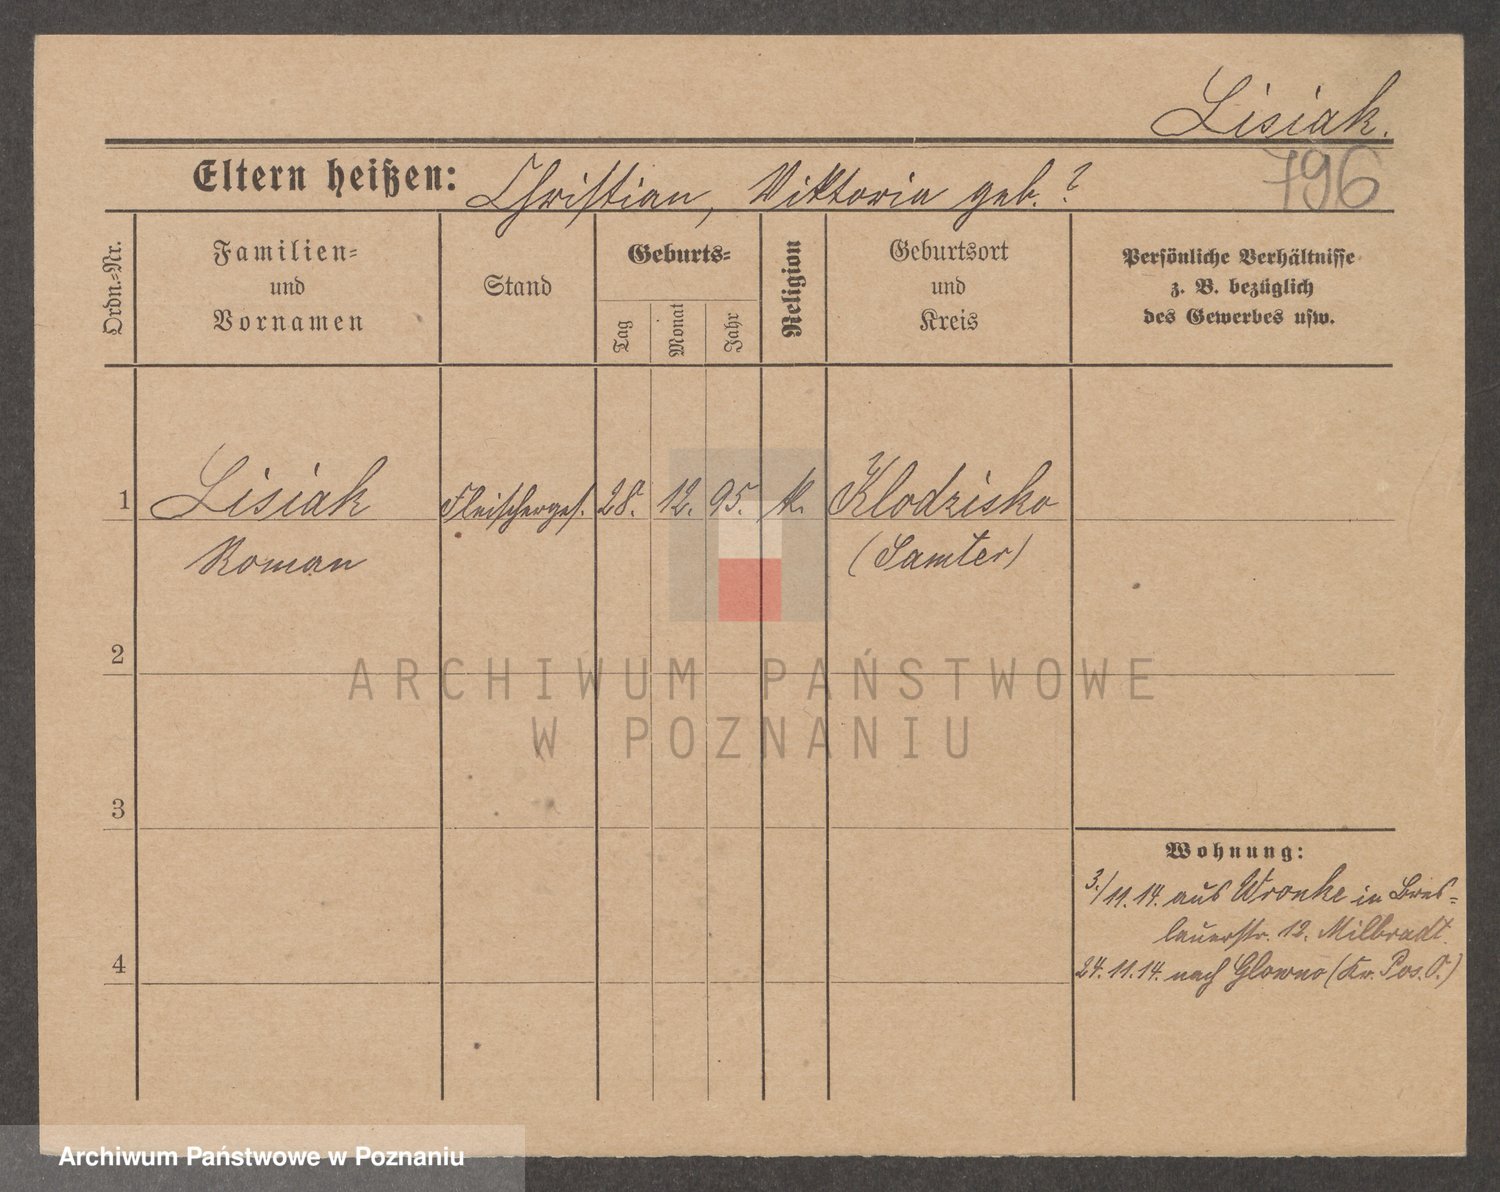 Lisiak.
796
Eltern heißen: Christian, Viktoria geb. ?
Ordn.-Nr.
Familien-
und
Vornamen
Stand
Geburts-
Tag
Monat
Jahr
Religion
Geburtsort
und
Kreis
Persönliche Verhältnisse
z. B. bezüglich
des Gewerbes usw.
1 Lisiak Fleischerges. 28. 12. 95. k. Klodzisko
Roman (Samter)
2
3
4
Wohnung:
3./11.14. aus Wronke in Bres-
lauerstr. 12. Milbradt.
24.11.14. nach Glowno (Kr. Pos. O.)
ARCHIWUM PAŃSTWOWE
W POZNANIU
Archiwum Państwowe w Poznaniu